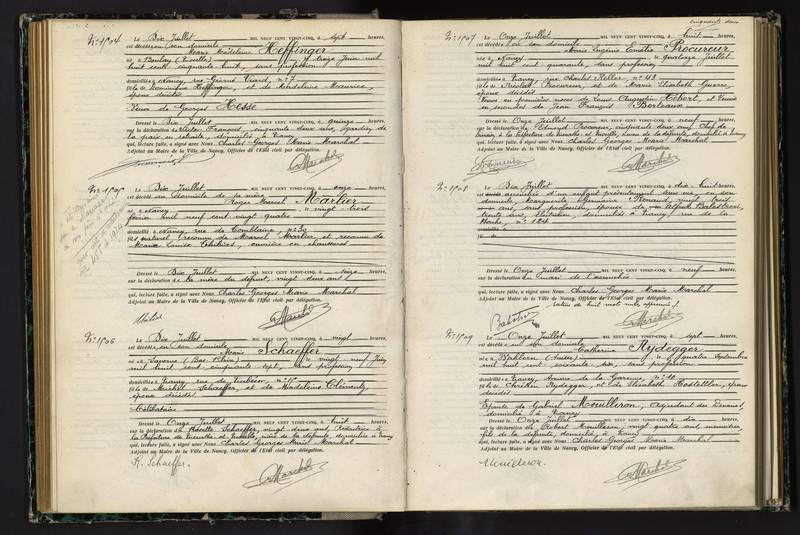 N° 1904
Le Dix Juillet MIL NEUF CENT VINGT-CINQ, à sept heures,
est décédée en son domicile
Marie Madeleine Heffinger
née à Boulay (Moselle) le treize Juin mil
huit cent cinquante huit, sans profession
domiciliée à Nancy, rue Girard n° 7
fille de Dominique Heffinger, et de Madeleine Maurice,
époux décédés
Veuve de Georges Hesse
Dressé le Dix Juillet MIL NEUF CENT VINGT-CINQ, à quinze heures,
sur la déclaration de François, cinquante deux ans, gardien de
la paix en retraite, domicilié à Nancy
qui, lecture faite, a signé avec Nous Charles Georges Marie Marchal
Adjoint au Maire de la Ville de Nancy, Officier de l'Etat civil par délégation.
N° 1905
Le Dix Juillet MIL NEUF CENT VINGT-CINQ, à onze heures,
est décédé au domicile de sa mère
Roger Marcel Marlier
né à Nancy le vingt trois
février mil neuf cent vingt quatre
domicilié à Nancy, rue de n° 30
fils naturel reconnu de Marcel Marlier, et reconnu de
Maria Louise, ouvrière en chaussures
Dressé le Dix Juillet MIL NEUF CENT VINGT-CINQ, à seize heures,
sur la déclaration de la mère du défunt, vingt deux ans
qui, lecture faite, a signé avec Nous Charles Georges Marie Marchal
Adjoint au Maire de la Ville de Nancy, Officier de l'Etat civil par délégation.
N° 1906
Le Dix Juillet MIL NEUF CENT VINGT-CINQ, à vingt heures,
est décédée en son domicile
Marie Schaeffer
née à Saverne (Bas-Rhin) le vingt neuf Juin
mil huit cent cinquante sept, sans profession
domiciliée à Nancy, rue de
fille de Michel Schaeffer, et de Madeleine Clémentz,
époux décédés
Célibataire
Dressé le Onze Juillet MIL NEUF CENT VINGT-CINQ, à huit heures,
sur la déclaration de Schaeffer, vingt deux ans, Rédacteur à
la Préfecture de Meurthe et Moselle, nièce de la défunte, domiciliée à Nancy
qui, lecture faite, a signé avec Nous Charles Georges Marie Marchal
Adjoint au Maire de la Ville de Nancy, Officier de l'Etat civil par délégation.
R. Schaeffer.
cinquante deux
N° 1907
Le Onze Juillet MIL NEUF CENT VINGT-CINQ, à huit heures,
est décédée en son domicile
Marie Eugénie Emélie Procureur
née à Nancy le quatorze Juillet
mil huit cent quarante, sans profession
domiciliée à Nancy, rue Charles Keller, n° 43
fille de Nicolas Procureur, et de Marie Elisabeth Guerre,
époux décédés
Veuve en premières noces de Louis Augustin Hébert, et Veuve
en secondes de Jean François Berteaux
Dressé le Onze Juillet MIL NEUF CENT VINGT-CINQ, à neuf heures,
sur la déclaration de Edmond Procureur, cinquante deux ans, Chef de
bureau à la Préfecture de Meurthe et Moselle, neveu de la défunte, domicilié à Nancy
qui, lecture faite, a signé avec Nous Charles Georges Marie Marchal
Adjoint au Maire de la Ville de Nancy, Officier de l'Etat civil par délégation.
N° 1908
Le Dix Juillet MIL NEUF CENT VINGT-CINQ, à dix-huit heures,
est accouchée d'un enfant présentement sans vie, en son
domicile, Marguerite Germaine Renaud, vingt trois
ans, sans profession, épouse de Alfred,
trente ans, Electricien, domiciliés à Nancy, rue de la
Hache, n° 124
Dressé le Onze Juillet MIL NEUF CENT VINGT-CINQ, à neuf heures,
sur la déclaration du mari de l'accouchée
qui, lecture faite, a signé avec Nous Charles Georges Marie Marchal
Adjoint au Maire de la Ville de Nancy, Officier de l'Etat civil par délégation.
N° 1909
Le Onze Juillet MIL NEUF CENT VINGT-CINQ, à sept heures,
est décédée en son domicile
Catherine Rydegger
née à Wahlern (Suisse) le quatre Septembre
mil huit cent soixante six, sans profession
domiciliée à Nancy, Avenue de la Garenne, n° 10
fille de Christen Rydegger, et de Elisabeth Hostettler, époux
décédés
Epouse de Gabriel Mouilleron, Adjudant des Douanes,
domicilié à Nancy
Dressé le Onze Juillet MIL NEUF CENT VINGT-CINQ, à dix heures,
sur la déclaration de Robert Mouilleron, vingt quatre ans,
fils de la défunte, domicilié à Nancy
qui, lecture faite, a signé avec Nous Charles Georges Marie Marchal
Adjoint au Maire de la Ville de Nancy, Officier de l'Etat civil par délégation.